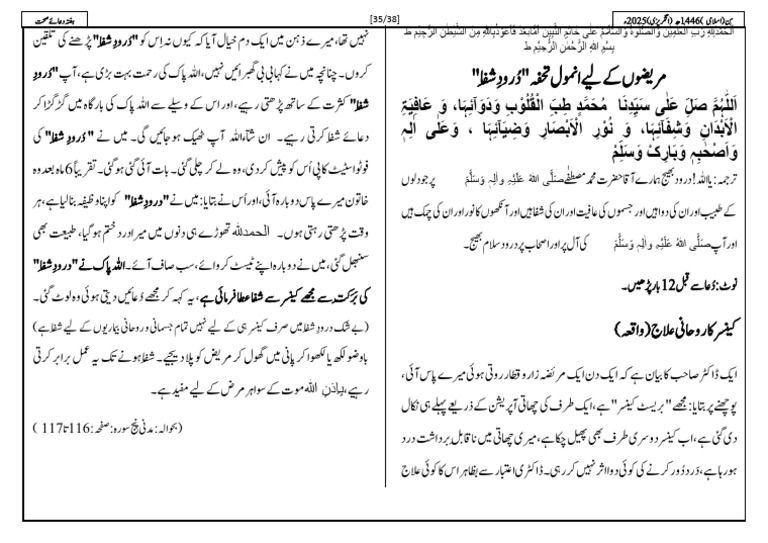 سن (اسلامی) 1446ھ (انگریزی) 2025ء
[35/38]
ہفتہ دعائے صحت
اَلْحَمْدُلِلّٰهِ رَبِّ الْعٰلَمِيْنَ وَالصَّلٰوةُ وَالسَّلَامُ عَلٰى خَاتَمِ النَّبِيِّيْنَ اَمَّابَعْدُ فَاَعُوْذُبِاللّٰهِ مِنَ الشَّيْطٰنِ الرَّجِيْمِ ط
بِسْمِ اللّٰهِ الرَّحْمٰنِ الرَّحِيْمِ ط
مریضوں کے لیے انمول تحفہ "دُرودِ شفا"
اَللّٰهُمَّ صَلِّ عَلٰى سَيِّدِنَا مُحَمَّدٍ طِبِّ الْقُلُوْبِ وَدَوَآئِهَا، وَ عَافِيَةِ
الْاَبْدَانِ وَشِفَآئِهَا، وَ نُوْرِ الْاَبْصَارِ وَضِيَآئِهَا ، وَعَلٰى اٰلِهٖ
وَاَصْحٰبِهٖ وَبَارِكْ وَسَلِّمْ
ترجمہ: یااللہ! درود بھیج ہمارے آقا حضرت محمد مصطفٰے صَلَّى اللهُ عَلَيْهِ وَاٰلِهٖ وَسَلَّمَ پر جو دلوں
کے طبیب اور ان کی دوا ہیں اور جسموں کی عافیت اور ان کی شفا ہیں اور آنکھوں کا نور اور ان کی چمک ہیں
اور آپ صَلَّى اللهُ عَلَيْهِ وَاٰلِهٖ وَسَلَّمَ کی آل پر اور اصحاب پر درود سلام بھیج۔
نوٹ: دُعا سے قبل 12 بار پڑھیں۔
کینسر کا روحانی علاج (واقعہ)
ایک ڈاکٹر صاحب کا بیان ہے کہ ایک دن ایک مریضہ زار و قطار روتی ہوئی میرے پاس آئی،
پوچھنے پر بتایا: مجھے "بریسٹ کینسر" ہے، ایک طرف کی چھاتی آپریشن کے ذریعے پہلے ہی نکال
دی گئی ہے، اب کینسر دوسری طرف بھی پھیل چکا ہے، میری چھاتی میں ناقابلِ برداشت درد
ہورہا ہے، دَرد دُور کرنے کی کوئی دوا اثر نہیں کررہی۔ ڈاکٹری اعتبار سے بظاہر اس کا کوئی علاج
نہیں تھا، میرے ذہن میں ایک دم خیال آیا کہ کیوں نہ اِس کو "دُرودِ شفا" پڑھنے کی تلقین
کروں۔ چنانچہ میں نے کہا بی بی گھبرائیں نہیں، اللہ پاک کی رحمت بہت بڑی ہے، آپ "دُرودِ
شفا" کثرت کے ساتھ پڑھتی رہیے، اور اس کے وسیلے سے اللہ پاک کی بارگاہ میں گڑگڑا کر
دعائے شفا کرتی رہیے۔ ان شآءاللہ آپ ٹھیک ہوجائیں گی۔ میں نے "دُرودِ شفا" کی
فوٹو اسٹیٹ کاپی اُس کو پیش کردی، وہ لے کر چلی گئی۔ بات آئی گئی ہوگئی۔ تقریباً 6 ماہ بعد وہ
خاتون میرے پاس دوبارہ آئی، اور اُس نے بتایا: میں نے "درودِ شفا" کو اپنا وظیفہ بنالیا ہے، ہر
وقت پڑھتی رہتی ہوں۔ الحمدللہ تھوڑے ہی دنوں میں میرا درد ختم ہوگیا، طبیعت بھی
سنبھل گئی، میں نے دوبارہ اپنے ٹیسٹ کروائے، سب صاف آئے۔ اللہ پاک نے "درودِ شفا"
کی بَرَکت سے مجھے کینسر سے شفا عطا فرمائی ہے، یہ کہہ کر مجھے دُعائیں دیتی ہوئی وہ لوٹ گئی۔
(بے شک درودِ شفا میں صرف کینسر ہی کے لیے نہیں تمام جسمانی و روحانی بیماریوں کے لیے شفا ہے)
باوضو لکھ یا لکھوا کر پانی میں گھول کر مریض کو پلا دیجیے۔ شفا ہونے تک یہ عمل برابر کرتی
رہیے، بِاِذْنِ اللّٰه موت کے سوا ہر مرض کے لیے مفید ہے۔
(بحوالہ: مدنی پنج سورہ: صفحہ: 116 تا 117)